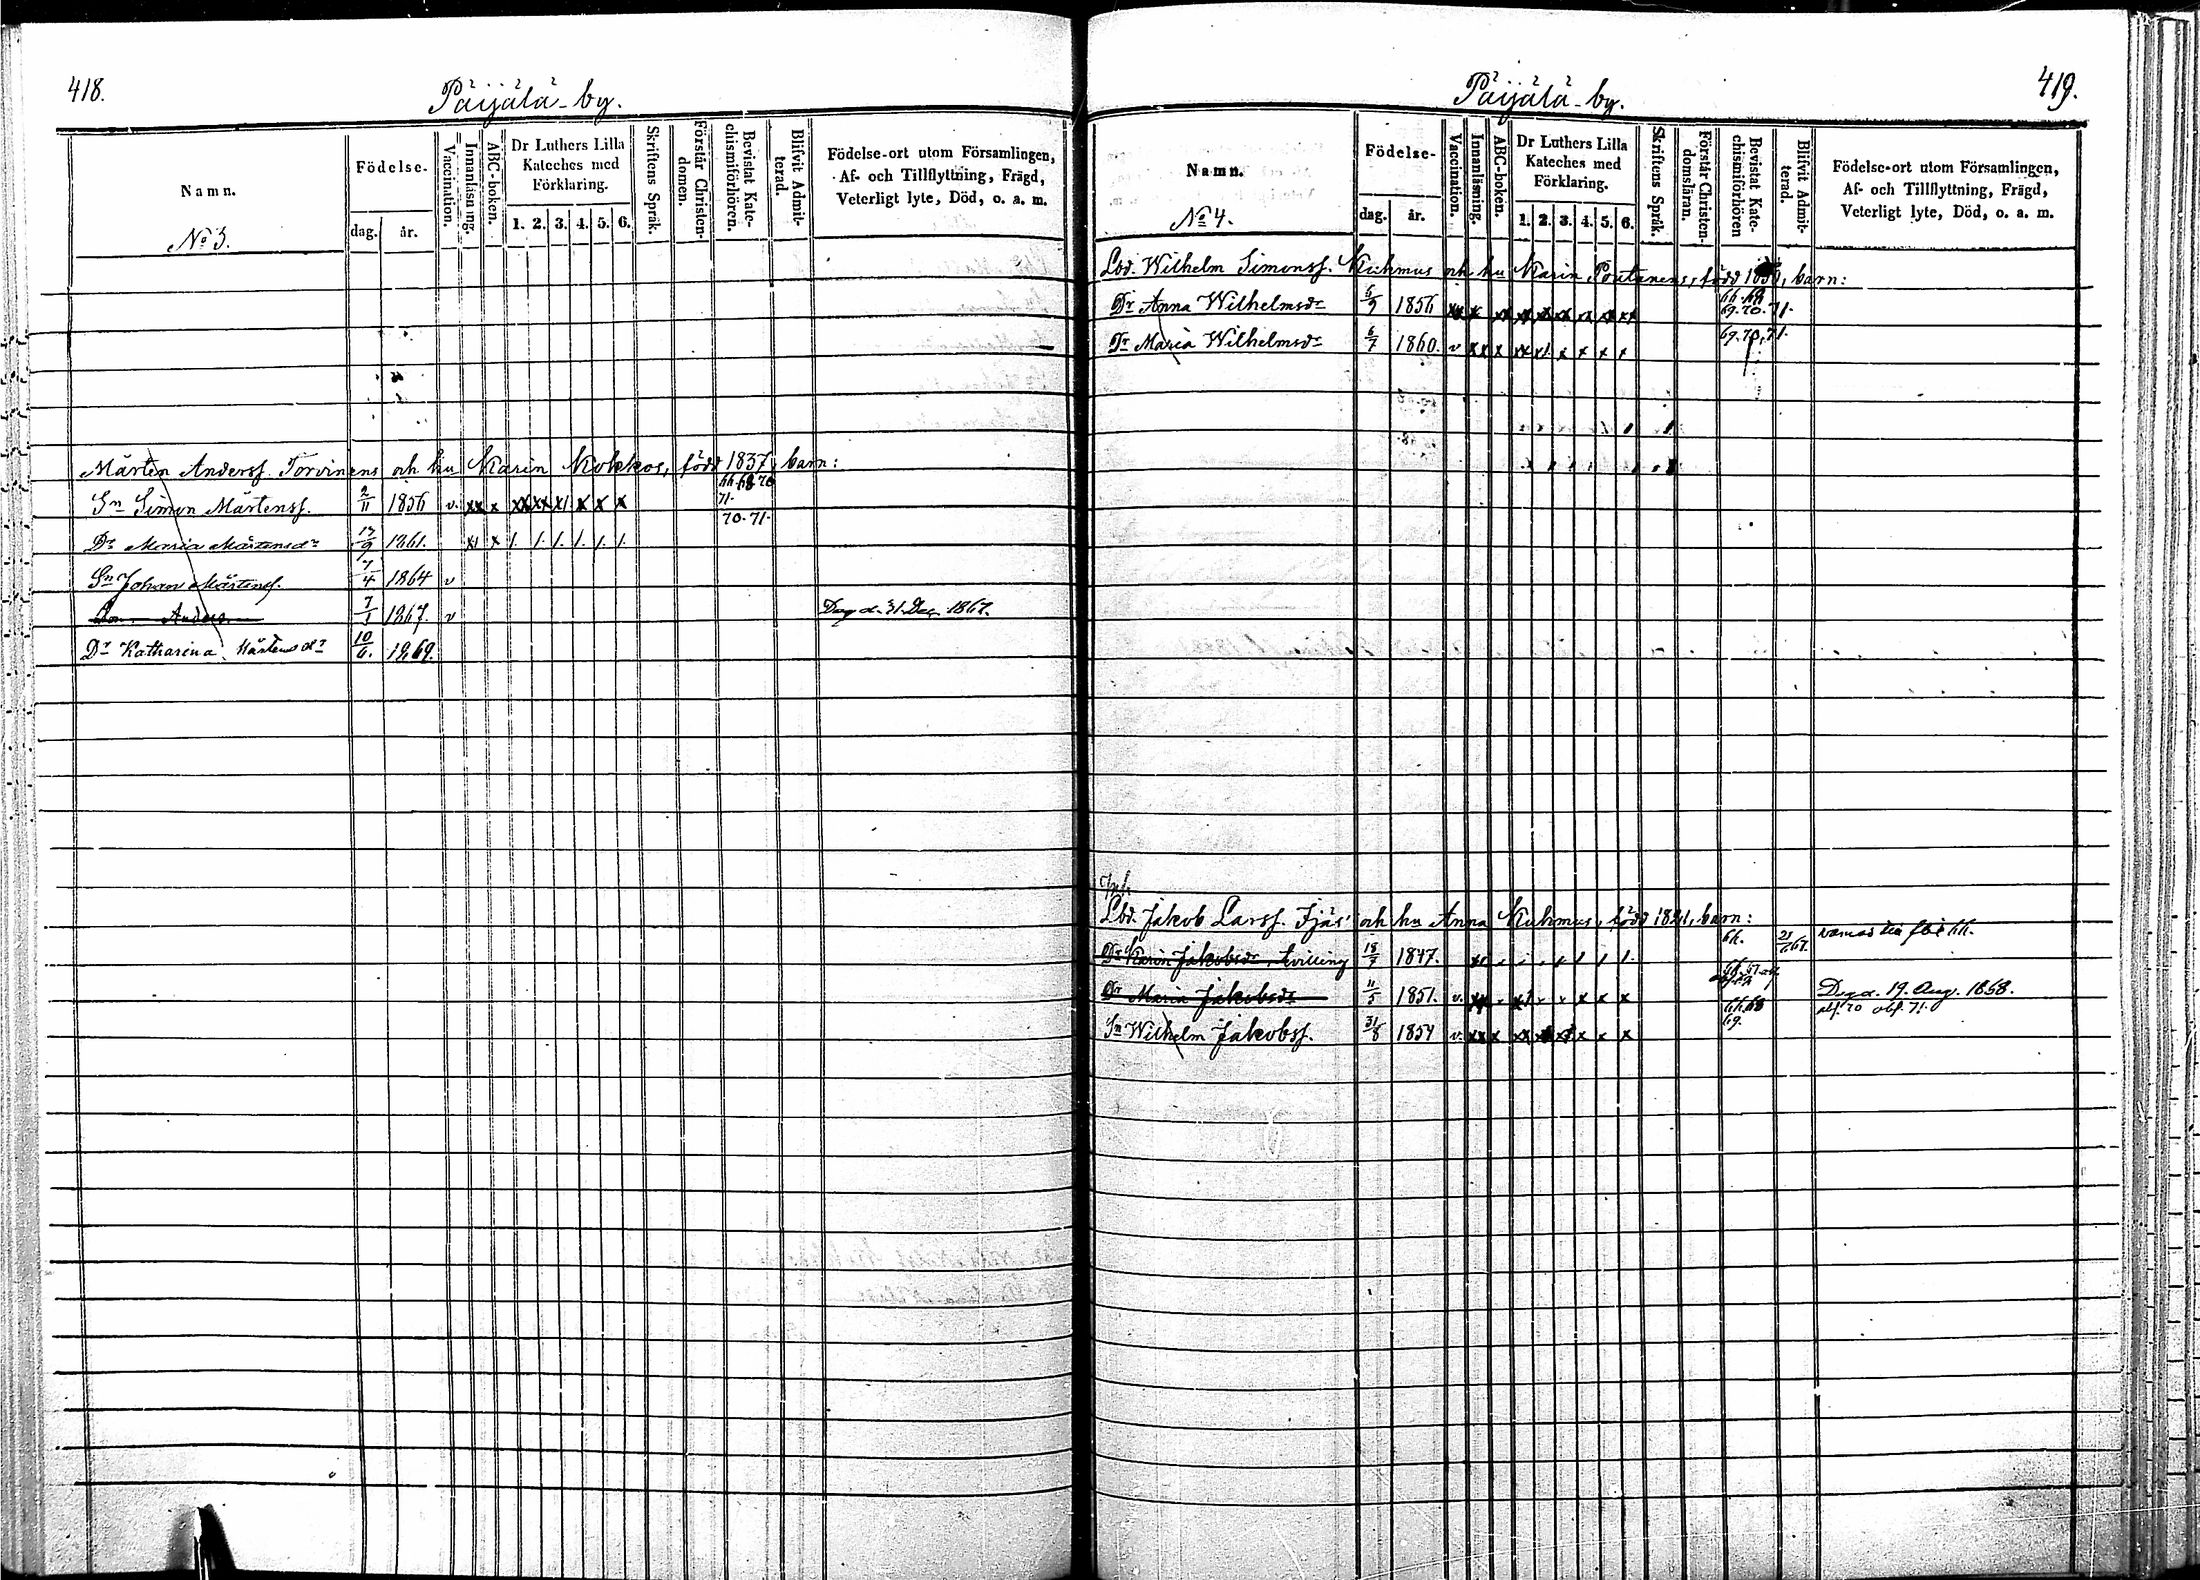 418.
Päijälä-by.
Namn.
Födelse-
dag.
år.
Vaccination.
Innanläsning.
ABC-boken.
Dr Luthers Lilla Kateches med Förklaring.
1. 2. 3. 4. 5. 6.
Skriftens Språk.
Förstår Christen-domen.
Bevistat Kate-chismiförhören.
Blifvit Admit-terad.
Födelse-ort utom Församlingen,
Af- och Tillflyttning, Frägd,
Veterligt lyte, Död, o. a. m.
No 3.
Mårten Anderss. Torvinens och hu Karin Kokkos, född 1837, barn:
Sn Simon Mårtenss. 2/11 1856 v. xx x xx xx x1 x x x 66. 68. 70 71.
Dr Maria Mårtensdr 17/9 1861. x1 x 1. 1. 1. 1. 1. 1. 70. 71.
Sn Johan Mårtenss. 7/4 1864 v
Son Anders 7/1 1867. v Dog d. 31 Dec. 1867.
Dr Katharina Mårtensdr 10/6. 1869.
419.
Päijälä-by.
Namn.
Födelse-
dag.
år.
Vaccination.
Innanläsning.
ABC-boken.
Dr Luthers Lilla Kateches med Förklaring.
1. 2. 3. 4. 5. 6.
Skriftens Språk.
Förstår Christen-domsläran.
Bevistat Kate-chismiförhören
Blifvit Admit-terad.
Födelse-ort utom Församlingen,
Af- och Tillflyttning, Frägd,
Veterligt lyte, Död, o. a. m.
No 4.
Lbd. Wilhelm Simonss. Kuhmus och hu Karin Poutanens, född barn:
Dr Anna Wilhelmsdr 6/9 1856 xx x xx xx xx xx xx xx xx 66. 68 69. 70. 71.
Dr Maria Wilhelmsdr 6/7 1860. v xx x xx x1. x x x x 69. 70. 71.
Inh.
Lbd. Jakob Larss. Ijäs och hu Anna Kuhmus, född 1821, barn:
Dr Karin Jakobsdr, tvilling 18/7 1847. 66. 67.
Dr Maria Jakobsdr 11/5 1851. v. Dog d. 19. Aug. 1868.
Sn Wilhelm Jakobss. 31/8 1854 v. xx x xx x x x 66. 68 69. abs. 70 abs. 71.